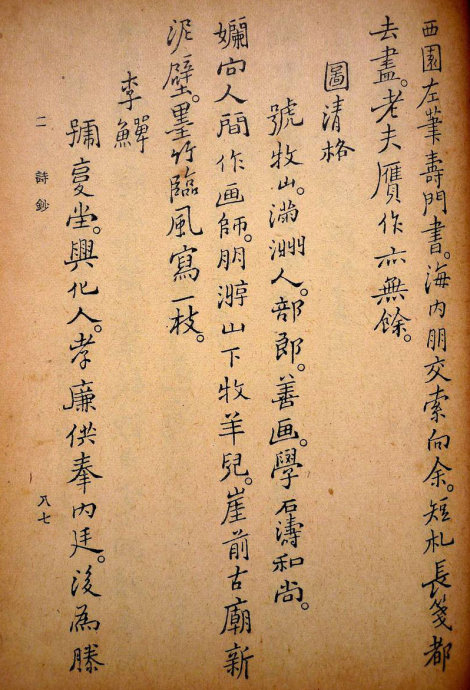 西園左筆壽門書。海內朋交索向余。短札長箋都
去盡。老夫贋作亦無餘。
圖清格
號牧山。滿洲人。部郎。善画。學石濤和尚。
嬾向人間作画師。朋游山下牧羊兒。崖前古廟新
泥壁。墨竹臨風寫一枝。
李鱓
號复堂。興化人。孝廉供奉內廷。後爲滕
二 詩鈔
八七